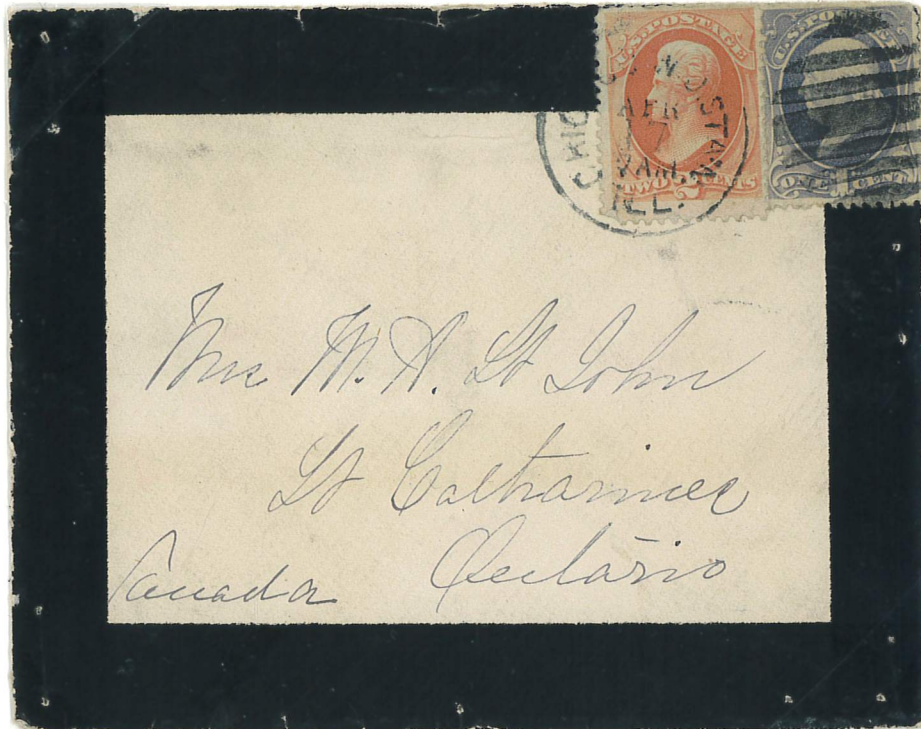 U.S. POSTAGE
TWO 2 CENTS
U.S. POSTAGE
ONE CENT
CHICAGO
N.D. STA
7
AM
ILL.
Mrs M. A. St John
St Catharines
Ontario
Canada